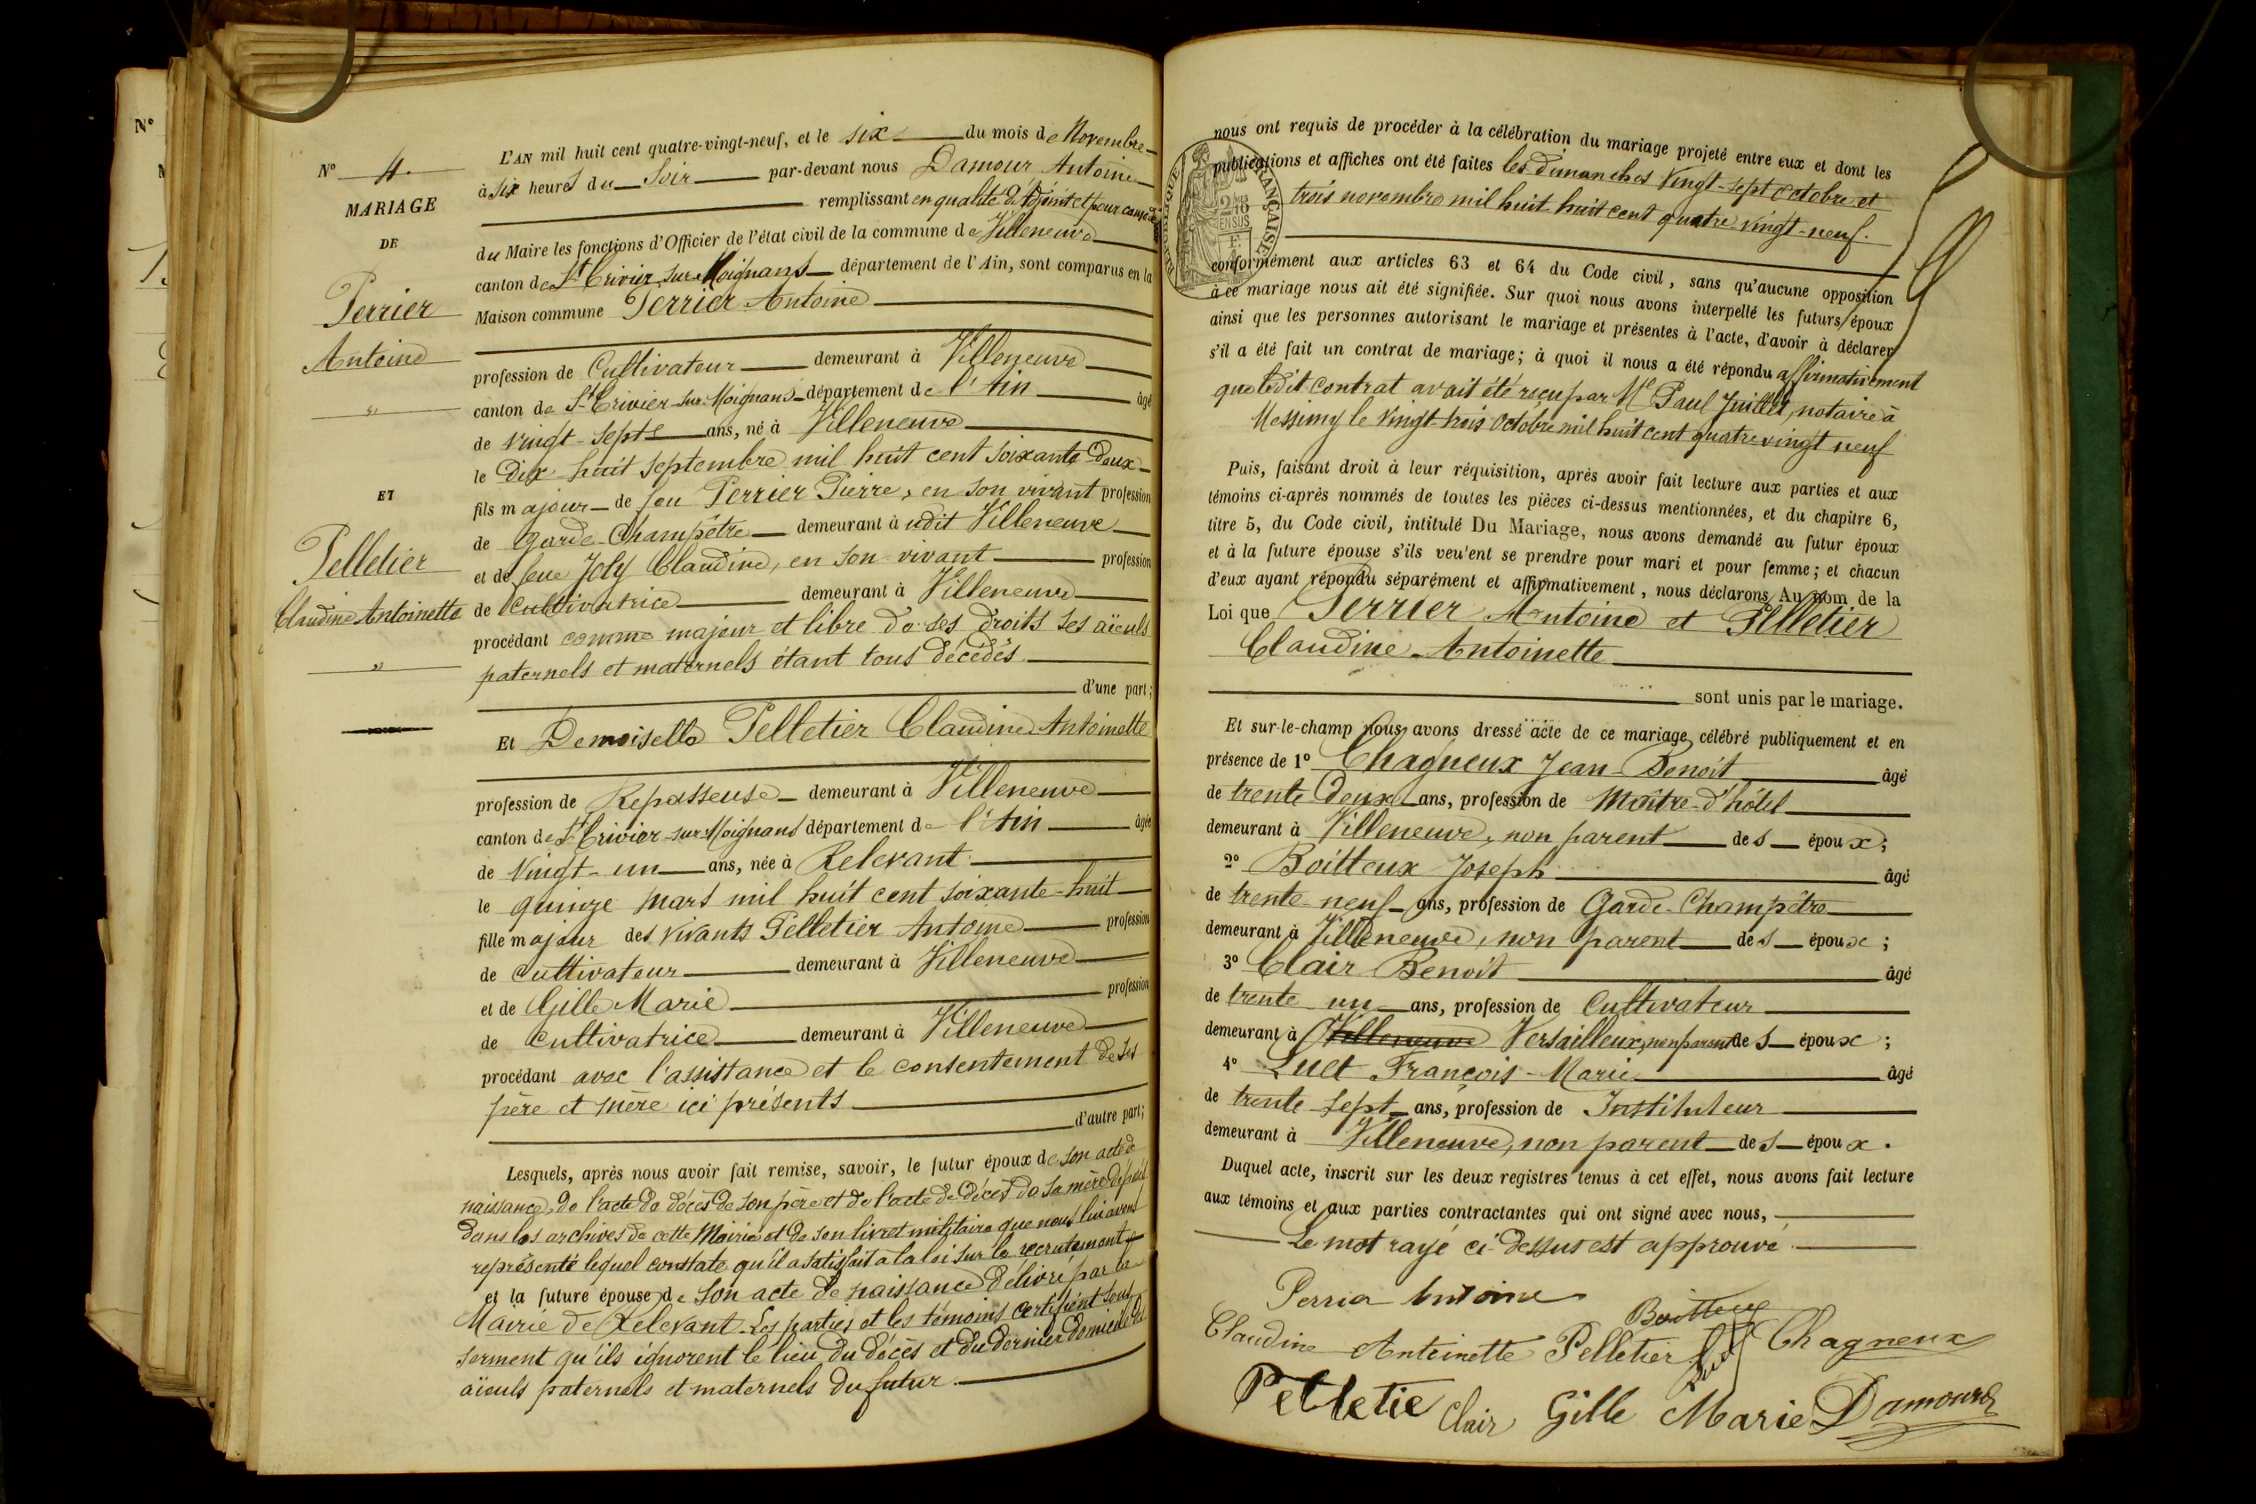 N° 4.
MARIAGE
DE
Perrier
Antoine
ET
Pelletier
Claudine Antoinette
L'AN mil huit cent quatre-vingt-neuf, et le six du mois de Novembre
à six heures du Soir par-devant nous Damour Antoine
remplissant en qualité d'Adjoint et pour cause de
du Maire les fonctions d'Officier de l'état civil de la commune de Villeneuve
canton de St Trivier sur Moignans département de l'Ain, sont comparus en la
Maison commune Perrier Antoine
profession de Cultivateur demeurant à Villeneuve
canton de St Trivier-sur-Moignans département de l'Ain âgé
de vingt-sept ans, né à Villeneuve
le Dix huit septembre mil huit cent soixante-deux
fils majour de feu Perrier Pierre, en son vivant profession
de garde-Champêtre demeurant à udit Villeneuve
et de feue Joly Claudine, en son vivant profession
de Cultivatrice demeurant à Villeneuve
procédant comme majeur et libre de ses droits ses aïeuls
paternels et maternels étant tous décédés
d'une part;
Et Demoiselle Pelletier Claudine Antoinette
profession de Repasseuse demeurant à Villeneuve
canton de St Trivier-sur-Moignans département de l'Ain âgée
de Vingt-un ans, née à Relevant
le quinze mars mil huit cent soixante-huit
fille majour des vivants Pelletier Antoine profession
de cultivateur demeurant à Villeneuve
et de Gille Marie profession
de Cultivatrice demeurant à Villeneuve
procédant avec l'assistance et le consentement de ses
père et mère ici présents
d'autre part;
Lesquels, après nous avoir fait remise, savoir, le futur époux de son acte de
naissance, de l'acte de décès de son père et de l'acte de décès de sa mère déposés
dans les archives de cette Mairie et de son livret militaire que nous lui avons
représenté lequel constate qu'il a satisfait à la loi sur le recrutement
et la future épouse de son acte de naissance délivré par la
Mairie de Relevant. Les parties et les témoins certifient sous
serment qu'ils ignorent le lieu du décès et du dernier domicile des
aïeuls paternels et maternels du futur
nous ont requis de procéder à la célébration du mariage projeté entre eux et dont les
publications et affiches ont été faites les dimanches Vingt-sept octobre et
trois novembre mil huit huit cent quatre-vingt-neuf.
conformément aux articles 63 et 64 du Code civil, sans qu'aucune opposition
à ce mariage nous ait été signifiée. Sur quoi nous avons interpellé les futurs époux
ainsi que les personnes autorisant le mariage et présentes à l'acte, d'avoir à déclarer
s'il a été fait un contrat de mariage; à quoi il nous a été répondu affirmativement
que ledit contrat avait été reçu par Me Paul Juillet, notaire à
Messimy le vingt-trois Octobre mil huit cent quatre vingt neuf
Puis, faisant droit à leur réquisition, après avoir fait lecture aux parties et aux
témoins ci-après nommés de toutes les pièces ci-dessus mentionnées, et du chapitre 6,
titre 5, du Code civil, intitulé Du Mariage, nous avons demandé au futur époux
et à la future épouse s'ils veulent se prendre pour mari et pour femme; et chacun
d'eux ayant répondu séparément et affirmativement, nous déclarons Au nom de la
Loi que Perrier Antoine et Pelletier
Claudine Antoinette
sont unis par le mariage.
Et sur-le-champ nous avons dressé acte de ce mariage célébré publiquement et en
présence de 1° Chagneux Jean-Benoît âgé
de trente Deux ans, profession de Maître-d'hôtel
demeurant à Villeneuve, non parent des époux;
2° Boitteux Joseph âgé
de trente neuf ans, profession de Garde-Champêtre
demeurant à Villeneuve, non parent des époux;
3° Clair Benoît âgé
de trente un ans, profession de Cultivateur
demeurant à Villeneuve Versailleux, non parent des époux;
4° Luet François-Marie âgé
de trente sept ans, profession de Instituteur
demeurant à Villeneuve, non parent des époux.
Duquel acte, inscrit sur les deux registres tenus à cet effet, nous avons fait lecture
aux témoins et aux parties contractantes qui ont signé avec nous,
Le mot rayé ci-dessus est approuvé
Perrier Antoine Boitteux
Claudine Antoinette Pelletier Luet Chagneux
Pelletie Clair Gille Marie Damour